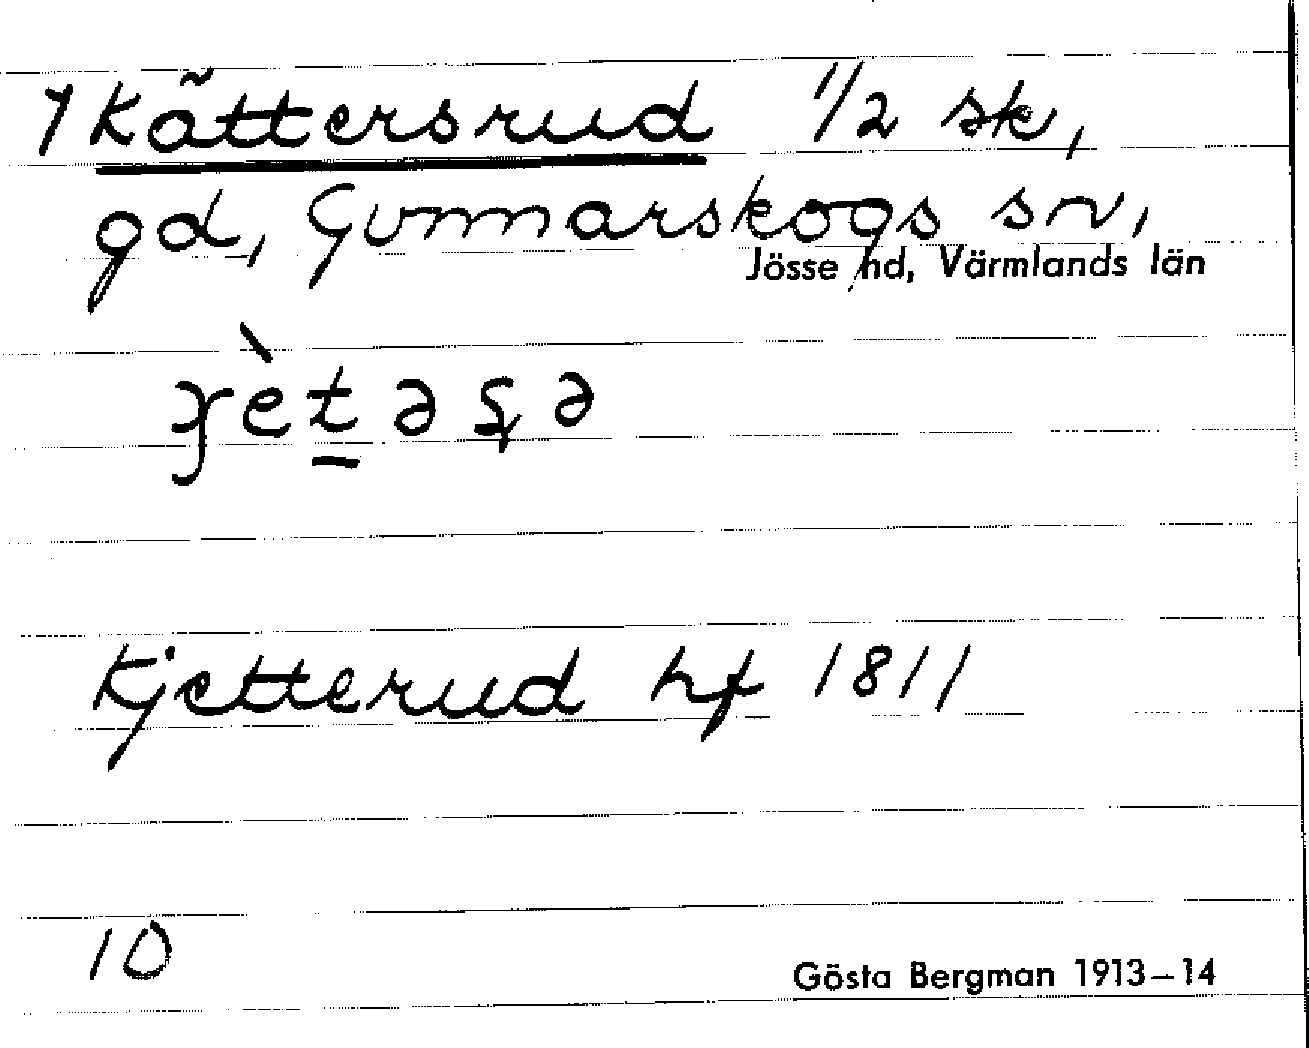 1 Kättersrud 1/2 sk,
gd, Gunnarskogs sn,
Jösse hd, Värmlands län
Kjetterud hf 1811
10
Gösta Bergman 1913–14